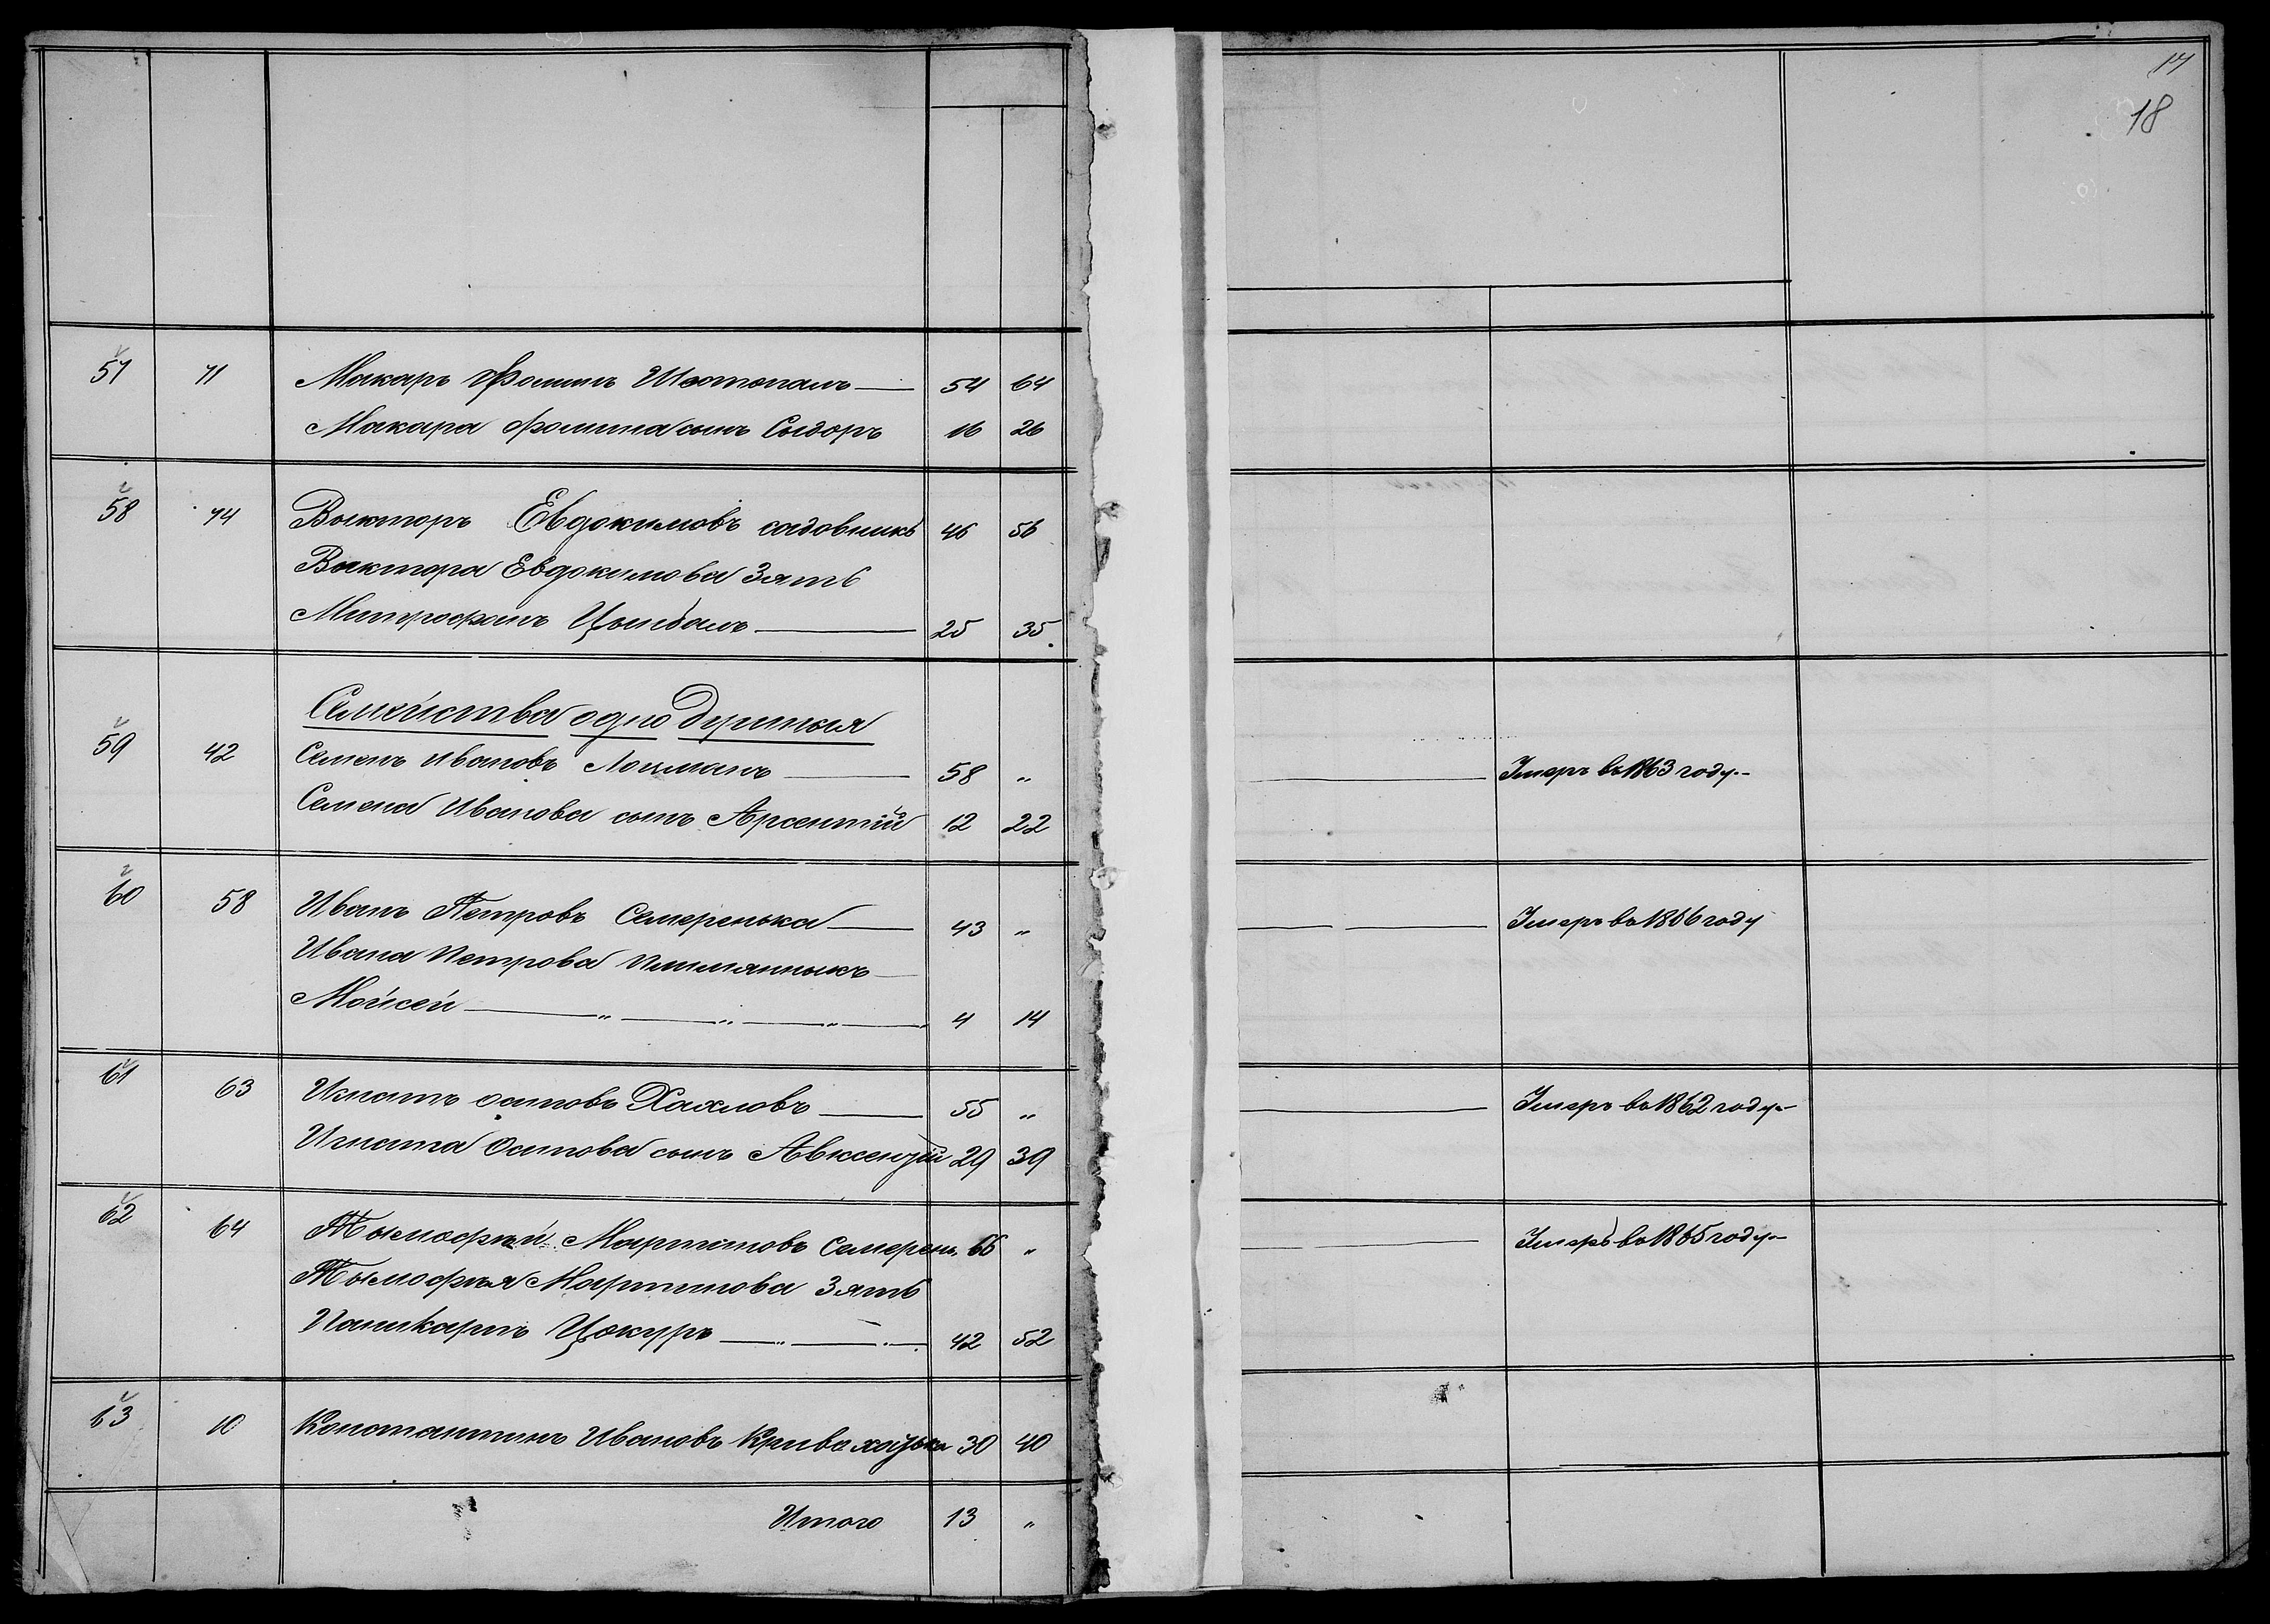 17
18
57 71 Макаръ Фоминъ Шостопалъ — 54 64
Макара Фомина сынъ Сыдоръ 16 26
58 74 Выкторъ Евдокимовъ садовникъ 46 56
Выктора Евдокимова Зять
Митрофанъ Цымбалъ — 25 35.
Семейства одно душныя
59 42 Семенъ Ивановъ Лоцманъ — 58 „ — Умеръ въ 1863 году.-
Семена Иванова сынъ Арсентій 12 22
60 58 Иванъ Петровъ Семеренька — 43 „ — Умеръ въ 1866 году
Ивана Петрова племянныкъ —
Мойсей — „ — „ — „ — 4 14
61 63 Игнатъ осиповъ Хахловъ — 55 „ — Умеръ въ 1862 году.-
Игната Осипова сынъ Авксентій 29 39
62 64 Тымофѣй Мартиновъ Семерень. 66 „ — Умеръ въ 1865 году.-
Тымофѣя Мартинова Зять
Паликарпъ Цокуръ — „ — „ — 42 52
63 10 Константинъ Ивановъ Кривохацька 30 40
Итого 13 „